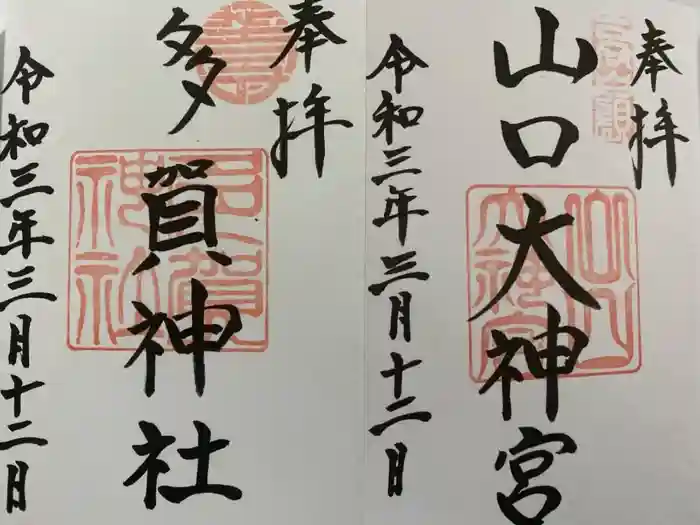 奉拝
山口大神宮
令和三年三月十二日
奉拝
多賀神社
令和三年三月十二日